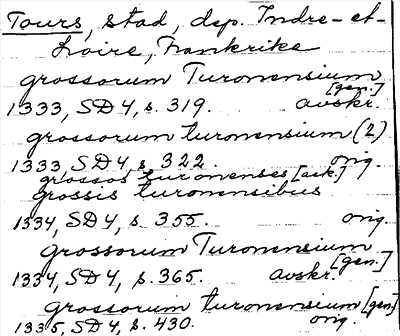 Tours, stad, dep. Indre-et-
Loire, Frankrike
grossorum Turonensium
[gen.]
1333, SD 4, s. 319. avskr.
grossorum turonensium (2)
1333, SD 4, s. 322. orig.
grossos turonenses [ack.]
grossis turonensibus
1334, SD 4, s. 355. orig.
grossorum Turonensium
[gen.]
1334, SD 4, s. 365. avskr.
grossorum turonensium [gen]
1335, SD 4, s. 430. orig.